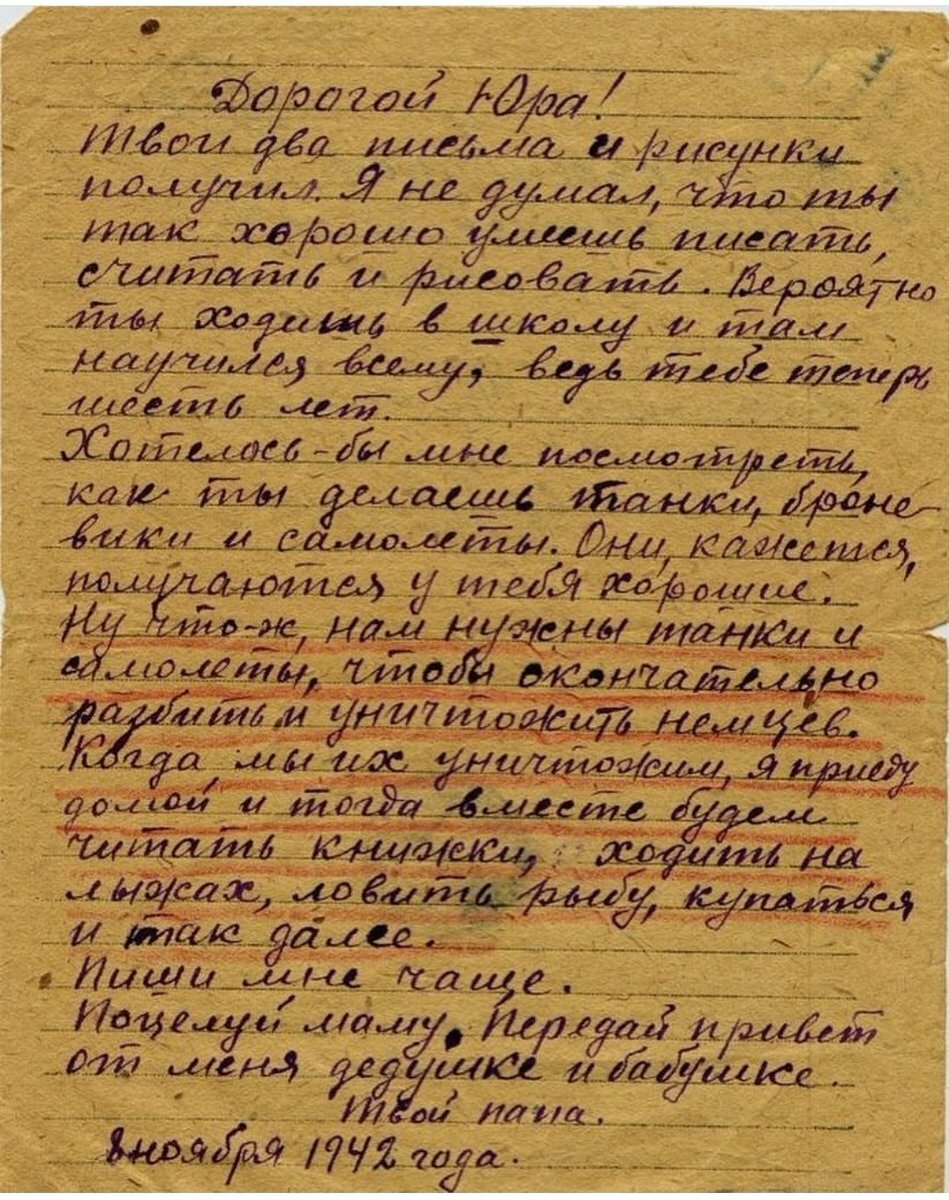 Дорогой Юра!
Твои два письма и рисунки
получил. Я не думал, что ты
так хорошо умеешь писать,
считать и рисовать. Вероятно
ты ходишь в школу и там
научился всему, ведь тебе теперь
шесть лет.
Хотелось-бы мне посмотреть,
как ты делаешь танки, броне-
вики и самолеты. Они, кажется,
получаются у тебя хорошие.
Ну что-ж, нам нужны танки и
самолеты, чтобы окончательно
разбить и уничтожить немцев.
Когда мы их уничтожим, я приеду
домой и тогда вместе будем
читать книжки, ходить на
лыжах, ловить рыбу, купаться
и так далее.
Пиши мне чаще.
Поцелуй маму. Передай привет
от меня дедушке и бабушке.
Твой папа.
8 ноября 1942 года.